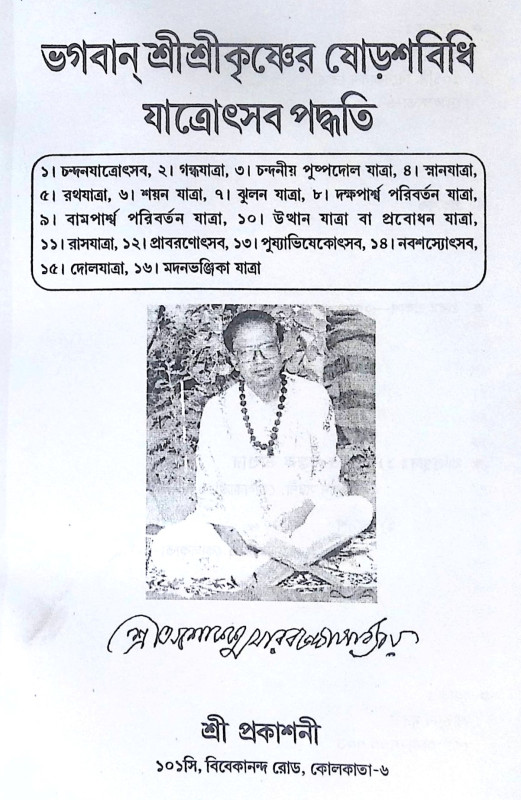 ভগবান্ শ্রীশ্রীকৃষ্ণের ষোড়শবিধি
যাত্রোৎসব পদ্ধতি
১। চন্দনযাত্রোৎসব, ২। গন্ধযাত্রা, ৩। চন্দনীয় পুষ্পদোল যাত্রা, ৪। স্নানযাত্রা,
৫। রথযাত্রা, ৬। শয়ন যাত্রা, ৭। ঝুলন যাত্রা, ৮। দক্ষপার্শ্ব পরিবর্তন যাত্রা,
৯। বামপার্শ্ব পরিবর্তন যাত্রা, ১০। উত্থান যাত্রা বা প্রবোধন যাত্রা,
১১। রাসযাত্রা, ১২। প্রাবরণোৎসব, ১৩। পুষ্যাভিষেকোৎসব, ১৪। নবশস্যোৎসব,
১৫। দোলযাত্রা, ১৬। মদনভঞ্জিকা যাত্রা
শ্রী
শ্রী প্রকাশনী
১০১সি, বিবেকানন্দ রোড, কোলকাতা-৬